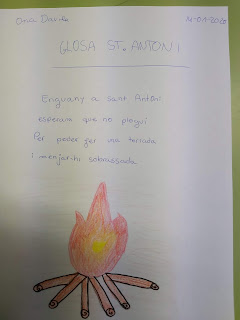 GLOSA ST. ANTONI
Enguany a sant Antoni
esperam que no plogui
Per poder fer una torrada
i menjar-hi sobrassada